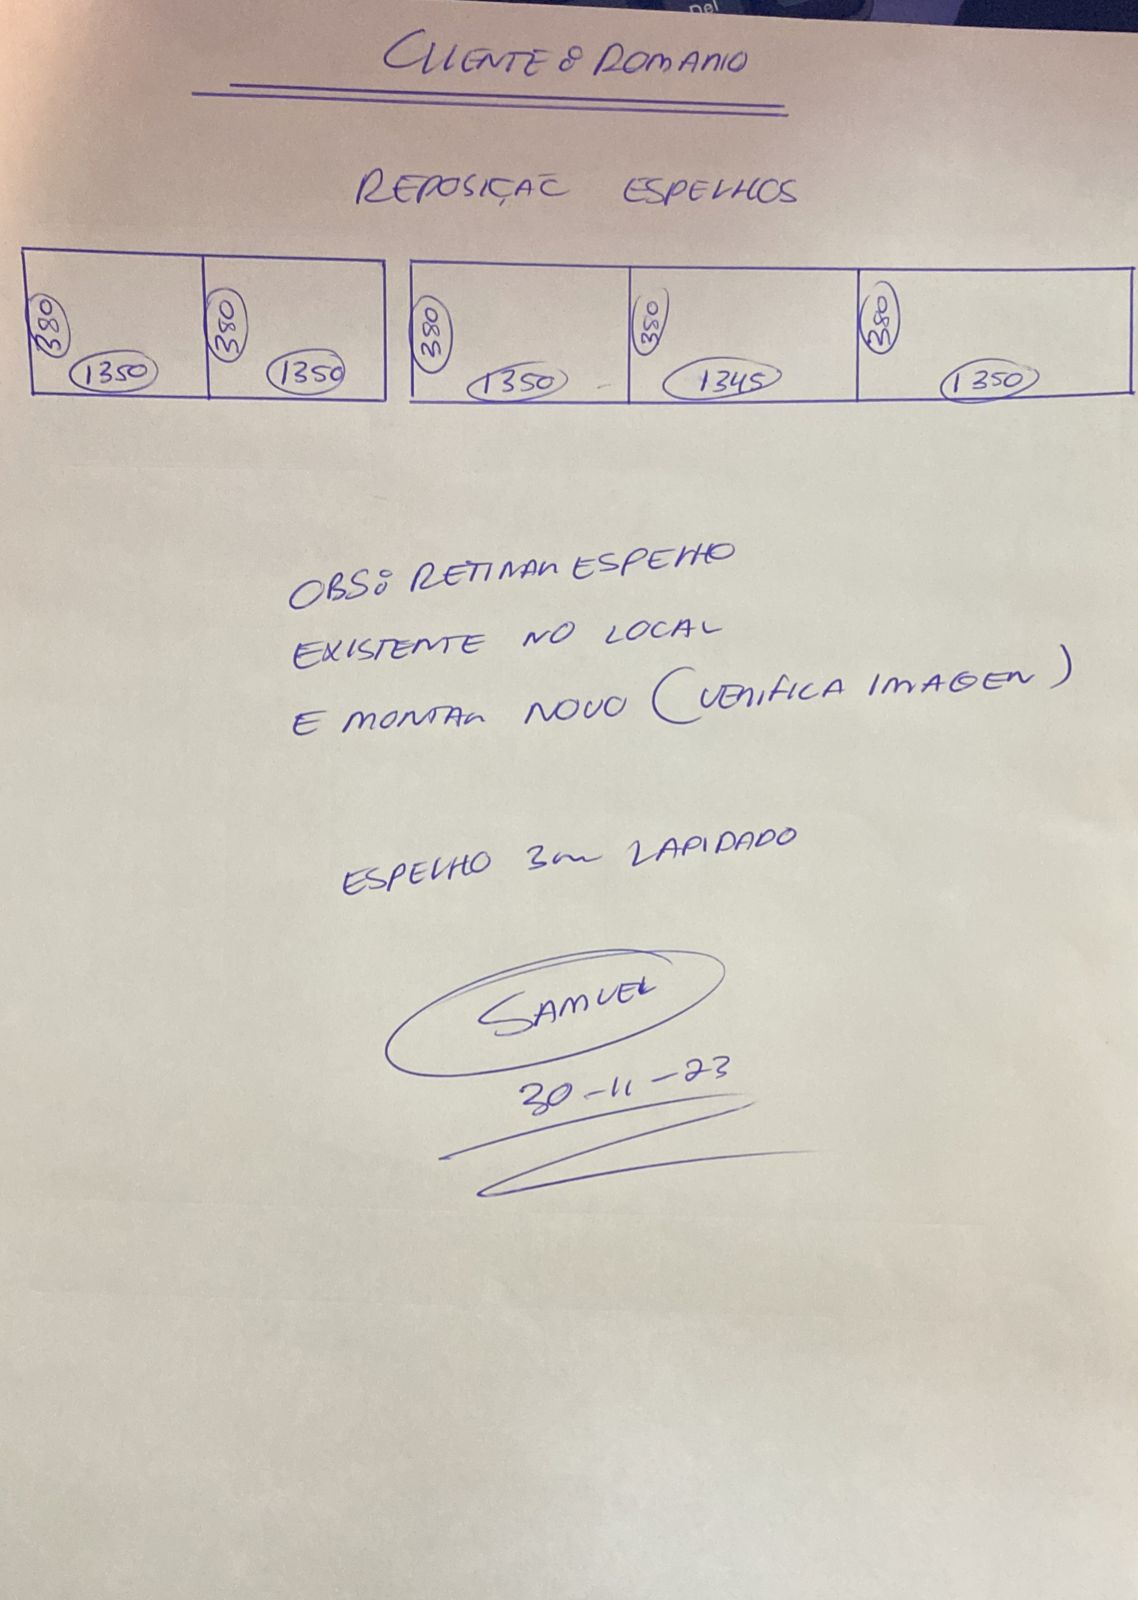 Del
CLIENTE: ROMARIO
REPOSIÇÃO ESPELHOS
380 380 380 380 380
1350 1350 1350 1345 1350
OBS: RETIRAR ESPELHO
EXISTENTE NO LOCAL
E MONTAR NOVO (VERIFICA IMAGEN)
ESPELHO 3mm LAPIDADO
SAMUEL
30-11-23